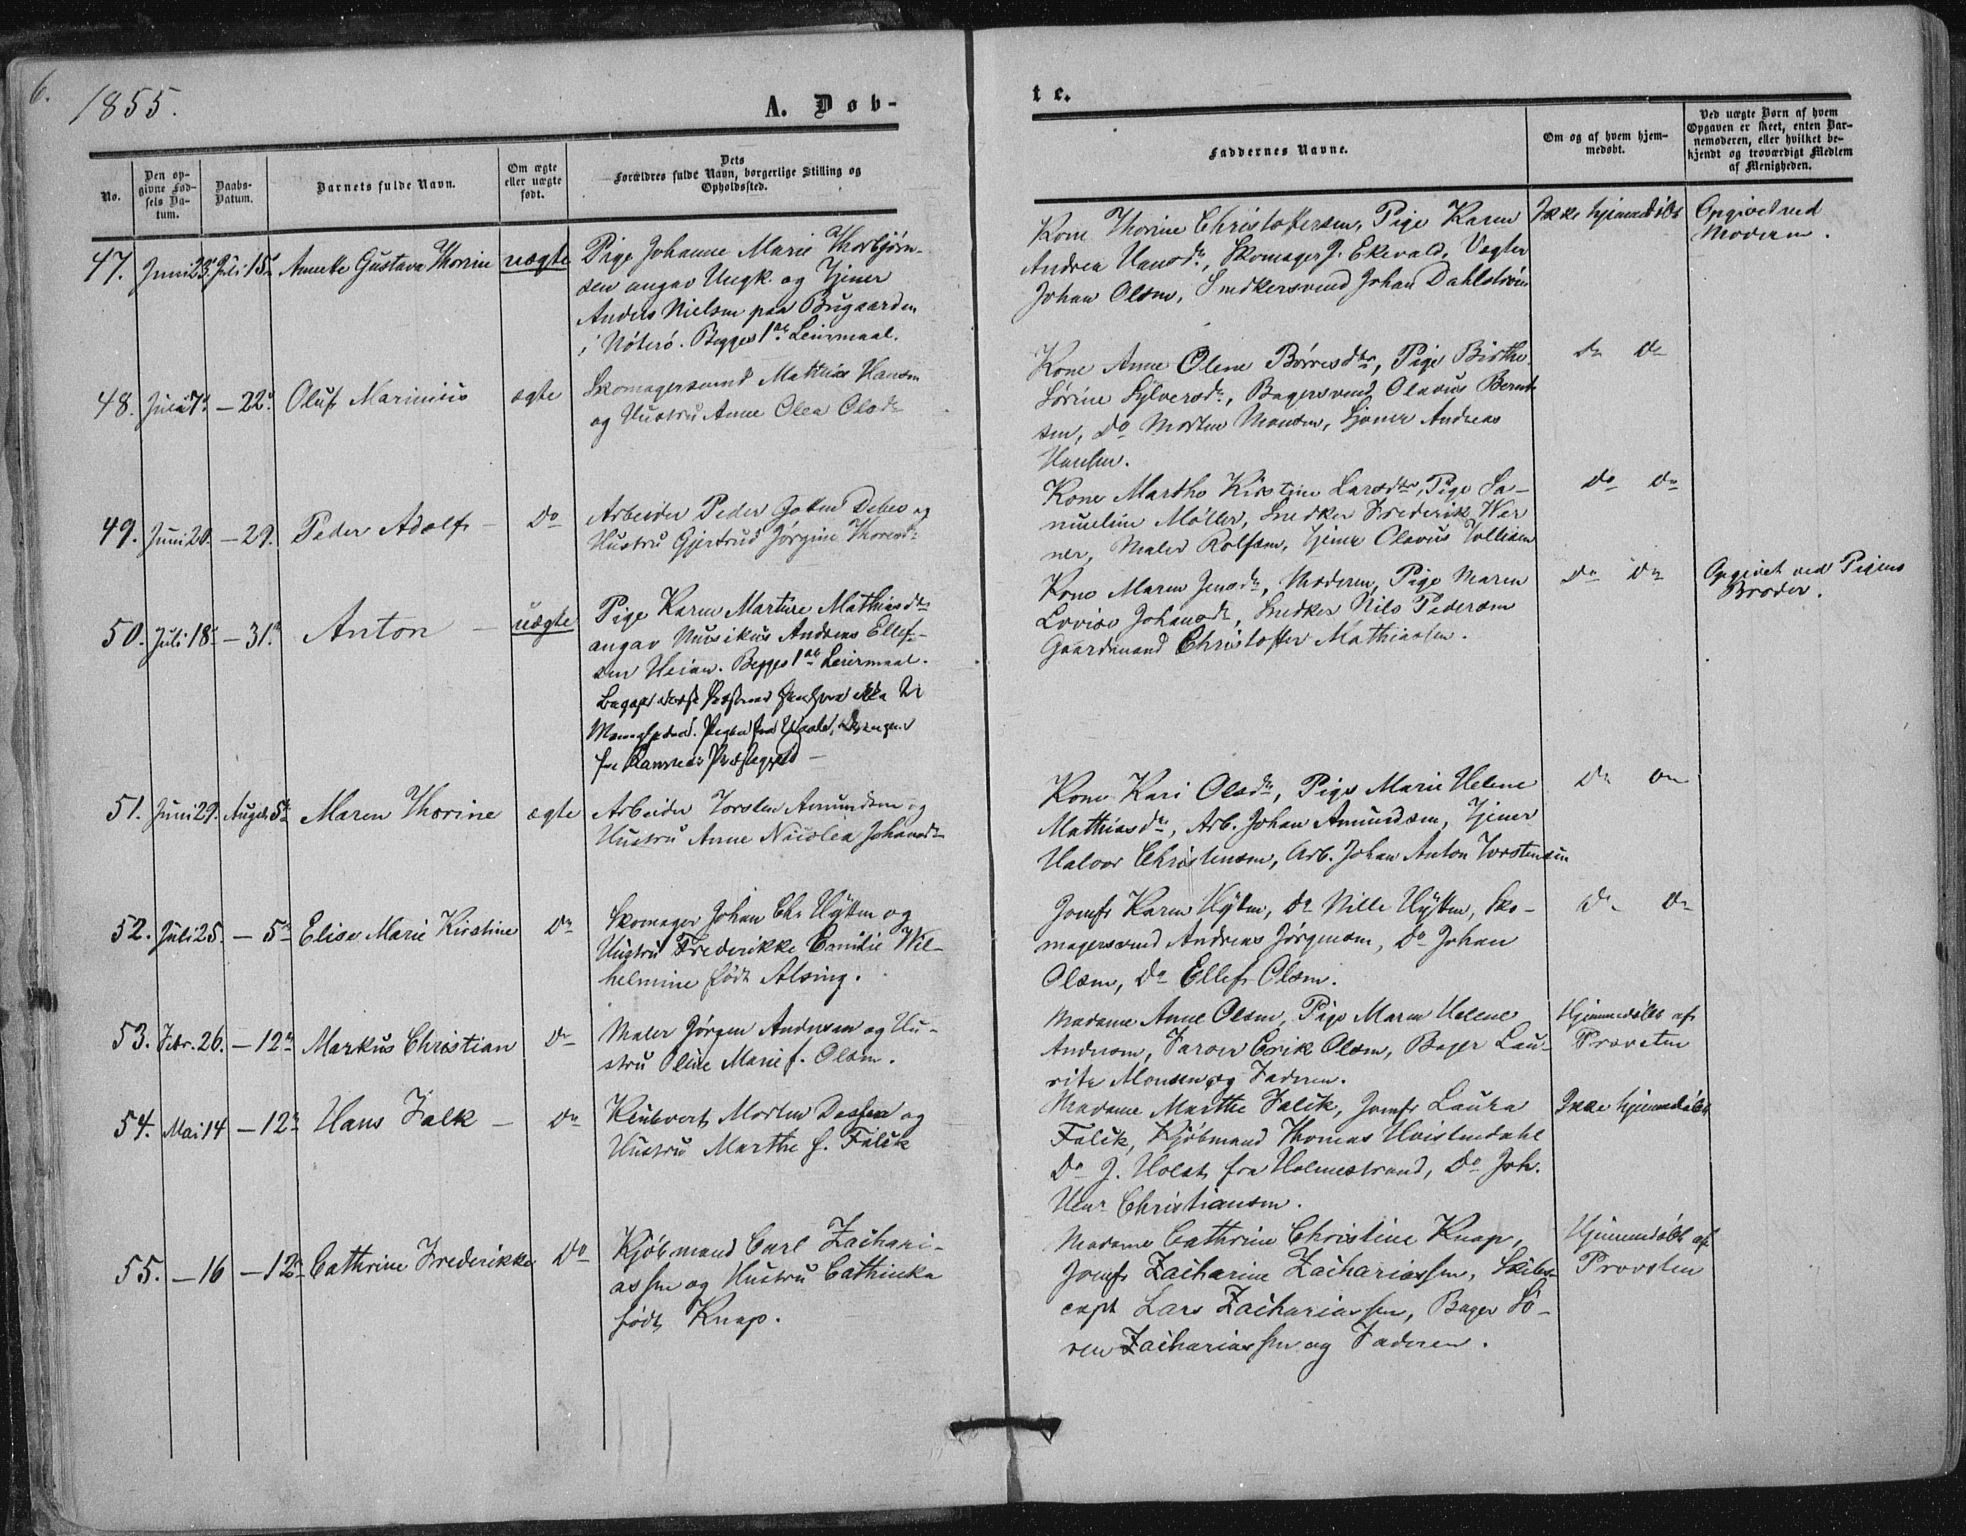 6.
1855.
A. Døb-
te.
No.
Den op-
givne Fød-
sels Da-
tum.
Daabs-
Datum.
Barnets fulde Navn.
Om ægte
eller uægte
født.
Dets
Forældres fulde Navn, borgerlige Stilling og
Opholdssted.
Faddernes Navne.
Om og af hvem hjem-
medøbt.
Ved uægte Børn af hvem
Opgaven er skeet, enten Bar-
nemoderen, eller hvilket be-
kjendt og troværdigt Medlem
af Menigheden.
47. Juni 23. Juli 15. Anneke Gustava Thorine uægte
Pige Johanne Marie Thorbjørn-
sen angav Ungk. og Tjener
Anders Nielsen paa Bugaarden
i Nøterø. Begges 1ste Leiermaal.
Kone Thorine Christoffersen, Pige Karen
Andrea Hansdr, Skomager J. Ekevald, Vægter
Johan Olsen, Snedkersvend Johan Dahlstrøm
Ikke hjemmedøbt
Opgivet ved
Moderen.
48. Juli 7. — 22. Oluf Marinius ægte
Skomagersvend Mathias Hansen
og Hustru Anne Olea Olsdr
Kone Anne Olene Børresdtr, Pige Birthe
Sørine Sylversdr, Bagersvend Olavus Bernt
sen, Do Morten Monsen, Tjener Andreas
Hansen.
Do Do
49. Juni 20. — 29. Peder Adolf — Do
Arbeider Peder Debes og
Hustru Gjertrud Jørgine Thoresdr
Kone Marthe Kirstine Larsdtr, Pige Sa-
mueline Møller, Snedker Frederik Wer
ner, Maler Rolfsen, Tjener Olavus Tollisen
Do Do
50. Juli 18. — 31. Anton — uægte
Pige Karen Martine Mathiasdtr
angav Musikus Andreas Ellef-
sen Heian. Begges 1ste Leiermaal.
Kone Maren Jensdr, Moderen, Pige Maren
Lovise Johansdr, Snedker Nils Pedersen
Gaardmand Christoffer Mathiassen.
Do Do
Opgivet ved Pigens
Broder.
51. Juni 29. Augst. 5. Maren Thorine ægte
Arbeider Torsten Amundsen og
Hustru Anne Nicolea Johansdr
Kone Kari Olsdr, Pige Marie Helene
Mathiasdr, Arb. Johan Amundsen, Tjener
Halvor Christensen, Arb. Johan Anton Torstensen
Do Do
52. Juli 25. — 5. Elise Marie Kirstine Do
Skomager Johan Chr Hytten og
Hustru Frederikke Camilie Wil-
helmine født Alsing.
Jomfr Karen Hytten, Do Nille Hytten, Sko-
magersvend Andreas Jørgensen, Do Johan
Olsen, Do Ellef Olsen.
Do Do
53. Febr. 26. — 12. Markus Christian Do
Maler Jørgen Andersen og Hu-
stru Oline Marie f. Olsen.
Madame Anne Olsen, Pige Maren Helene
Andersen, Farver Erik Olsen, Bager Lau-
ritz Monsen og Faderen.
Hjemmedøbt af
Provsten
54. Mai 14 — 12. Hans Falk — Do
Morten Dessen og
Hustru Marthe f. Falck
Madame Marthe Falck, Jomfr Laura
Falck, Kjøbmand Thomas Hvistendahl
Do J. Holst fra Holmestrand, Do Joh.
Henr Christiansen.
Ikke hjemmedøbt
55. — 16 — 12. Cathrine Frederikke Do
Kjøbmand Carl Zachari-
assen og Hustru Cathinka
født Knap.
Madame Cathrine Christine Knap,
Jomfr Zacharine Zachariassen, Skibs-
capt Lars Zachariassen, Bager Sø-
ren Zachariassen og Faderen.
Hjemmedøbt af
Provsten